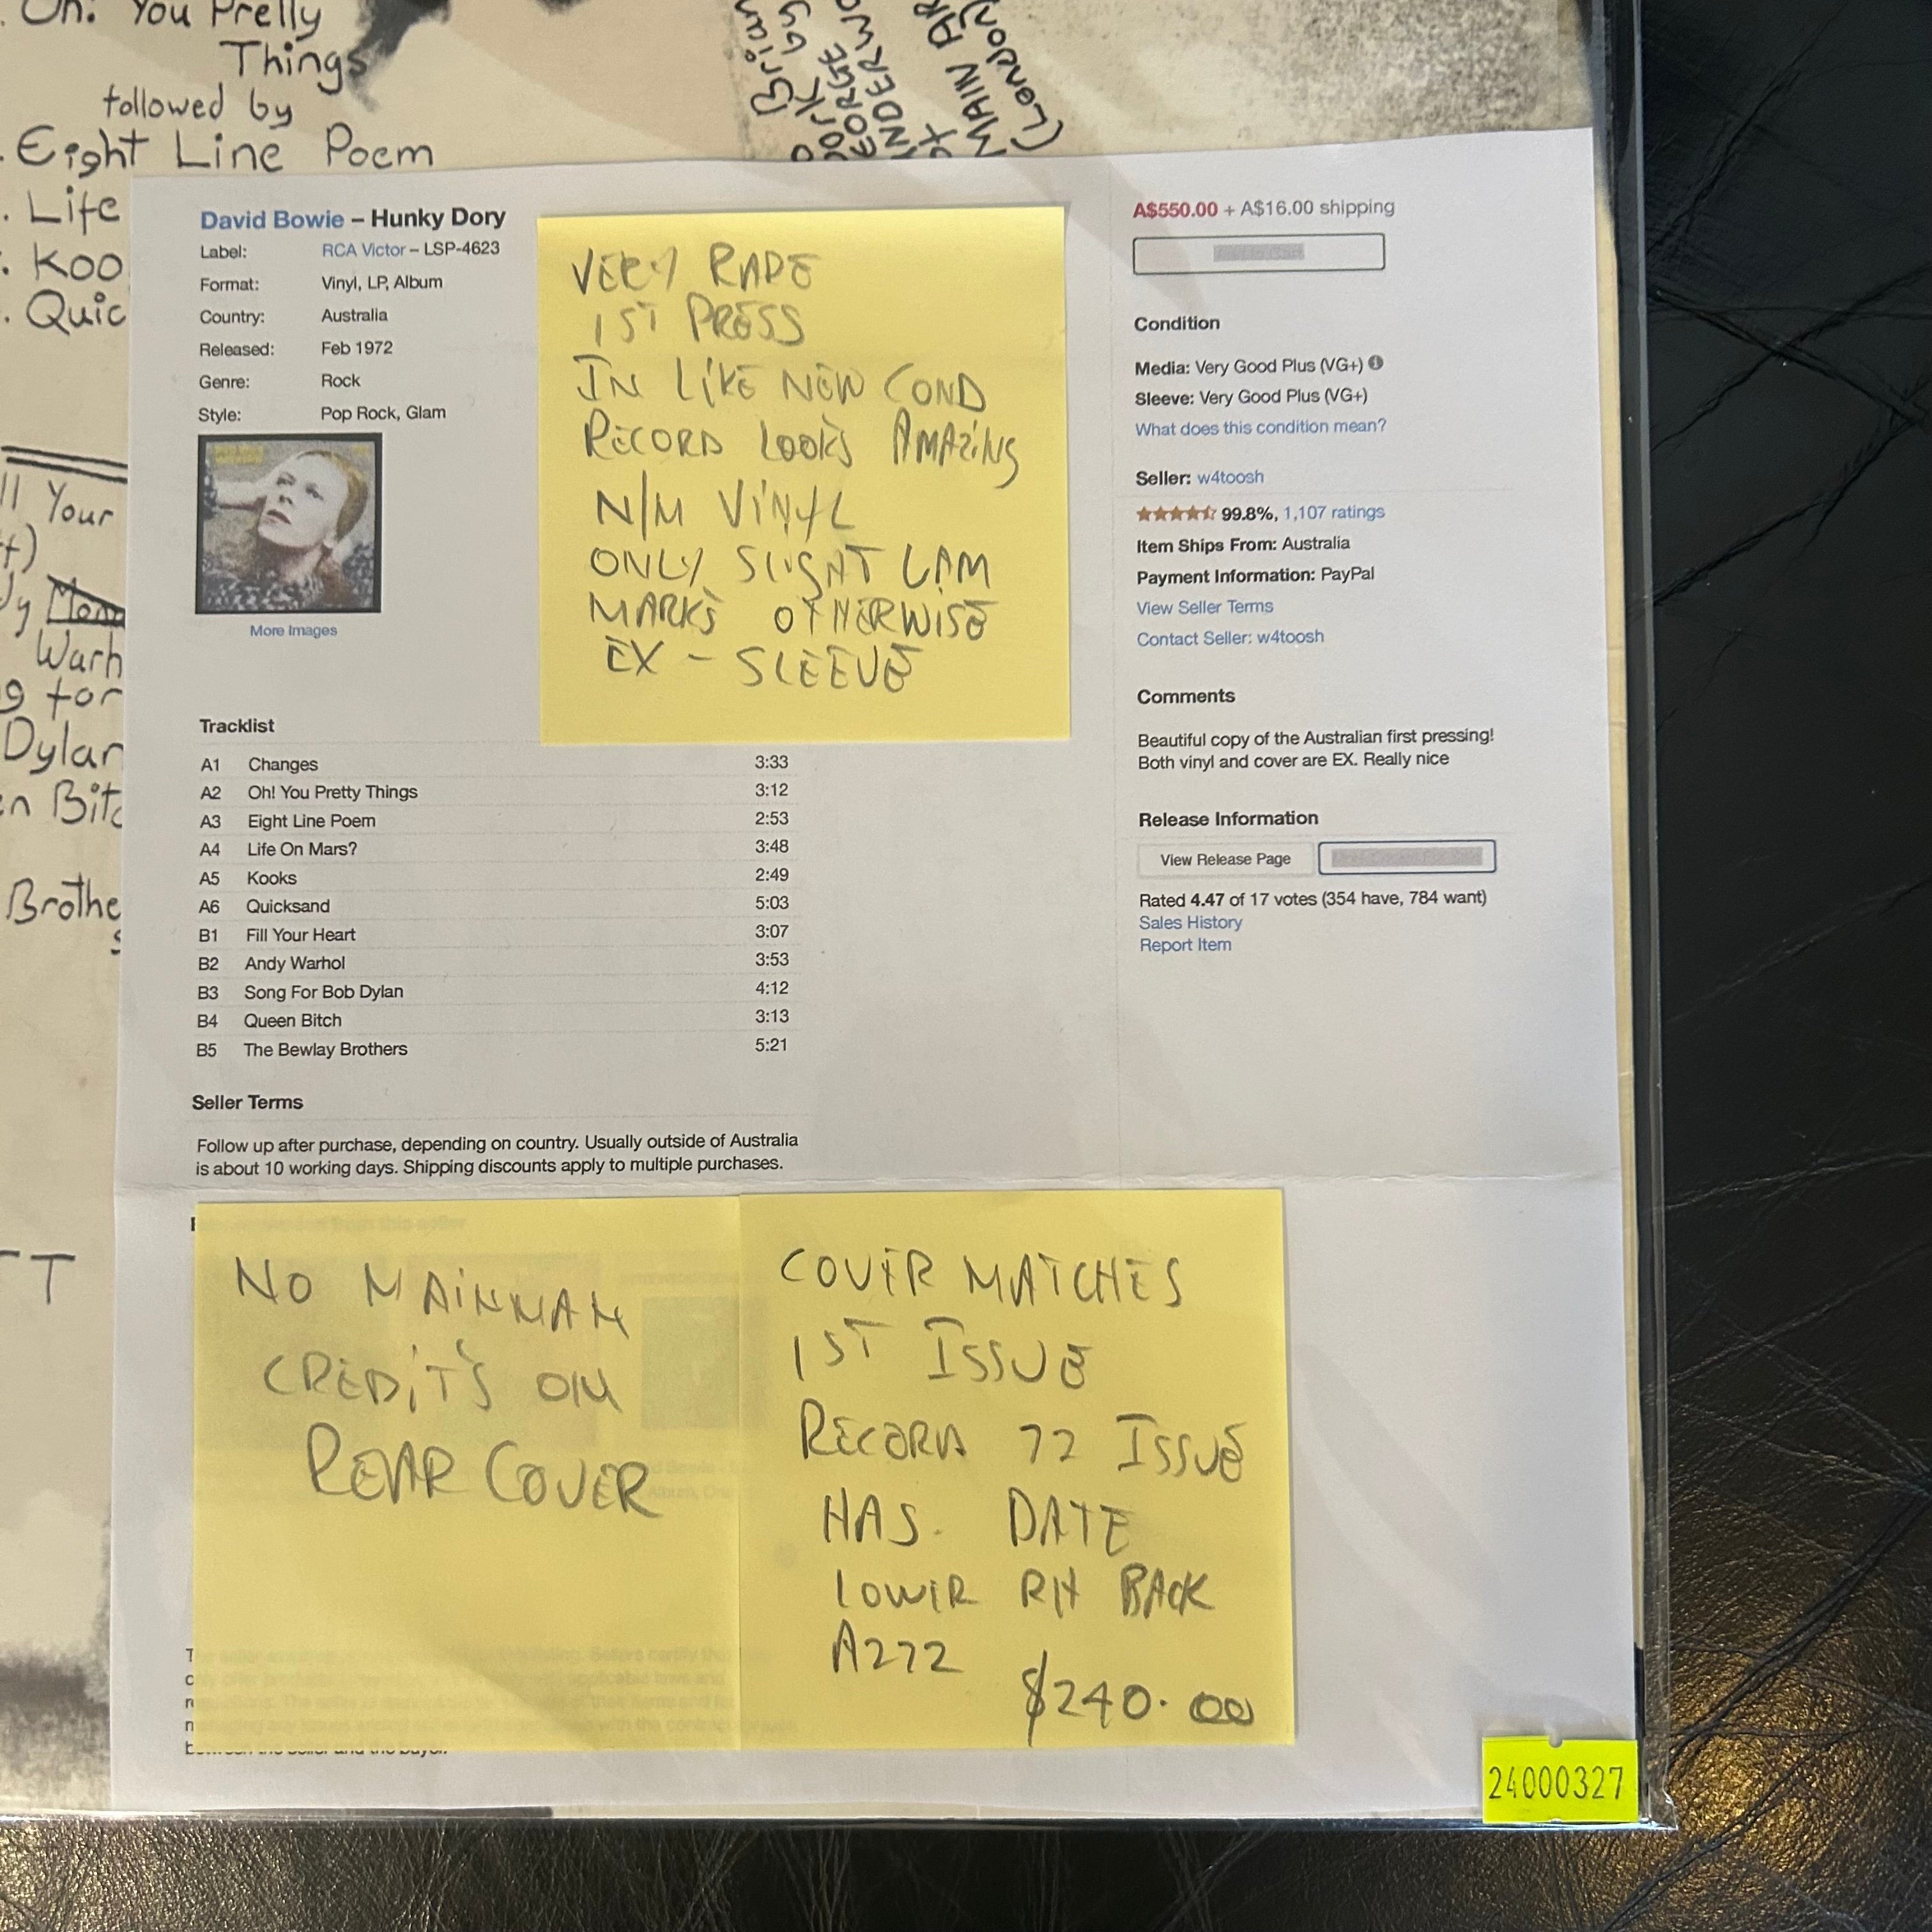 Oh! You Pretty
Things
followed by
. Eight Line Poem
. Life
. Koo
. Quic
ll Your
t)
dy
Warh
g for
Dylan
en Bitc
Brothe
s
TT
Brian
MAIN
(London
David Bowie – Hunky Dory
Label: RCA Victor – LSP-4623
Format: Vinyl, LP, Album
Country: Australia
Released: Feb 1972
Genre: Rock
Style: Pop Rock, Glam
More Images
VERY RARE
1ST PRESS
IN LIKE NEW COND
RECORD LOOKS AMAZING
N/M VINYL
ONLY SLIGHT LAM
MARKS OTHERWISE
EX - SLEEVE
A$550.00 + A$16.00 shipping
Condition
Media: Very Good Plus (VG+)
Sleeve: Very Good Plus (VG+)
What does this condition mean?
Seller: w4toosh
99.8%, 1,107 ratings
Item Ships From: Australia
Payment Information: PayPal
View Seller Terms
Contact Seller: w4toosh
Comments
Beautiful copy of the Australian first pressing!
Both vinyl and cover are EX. Really nice
Release Information
View Release Page
Rated 4.47 of 17 votes (354 have, 784 want)
Sales History
Report Item
Tracklist
A1 Changes 3:33
A2 Oh! You Pretty Things 3:12
A3 Eight Line Poem 2:53
A4 Life On Mars? 3:48
A5 Kooks 2:49
A6 Quicksand 5:03
B1 Fill Your Heart 3:07
B2 Andy Warhol 3:53
B3 Song For Bob Dylan 4:12
B4 Queen Bitch 3:13
B5 The Bewlay Brothers 5:21
Seller Terms
Follow up after purchase, depending on country. Usually outside of Australia
is about 10 working days. Shipping discounts apply to multiple purchases.
NO MAINMAN
CREDITS ON
REAR COVER
COVER MATCHES
1ST ISSUE
RECORD 72 ISSUE
HAS DATE
LOWER RH BACK
A272
$240.00
24000327